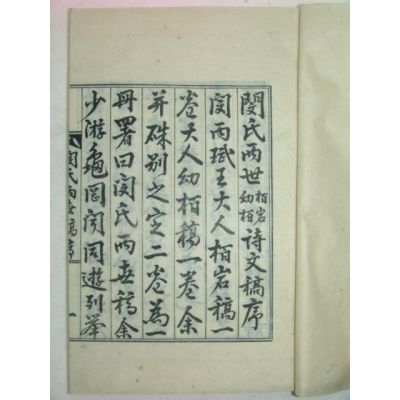 閔氏兩世栢岩幼栢詩文稿序
閔丙珷王大人栢岩稿一
卷大人幼栢稿一卷余
并硃別之定二卷為一
冊署曰閔氏兩世稿余
少游龜岡閔同遊列擧
閔氏兩世稿序
一